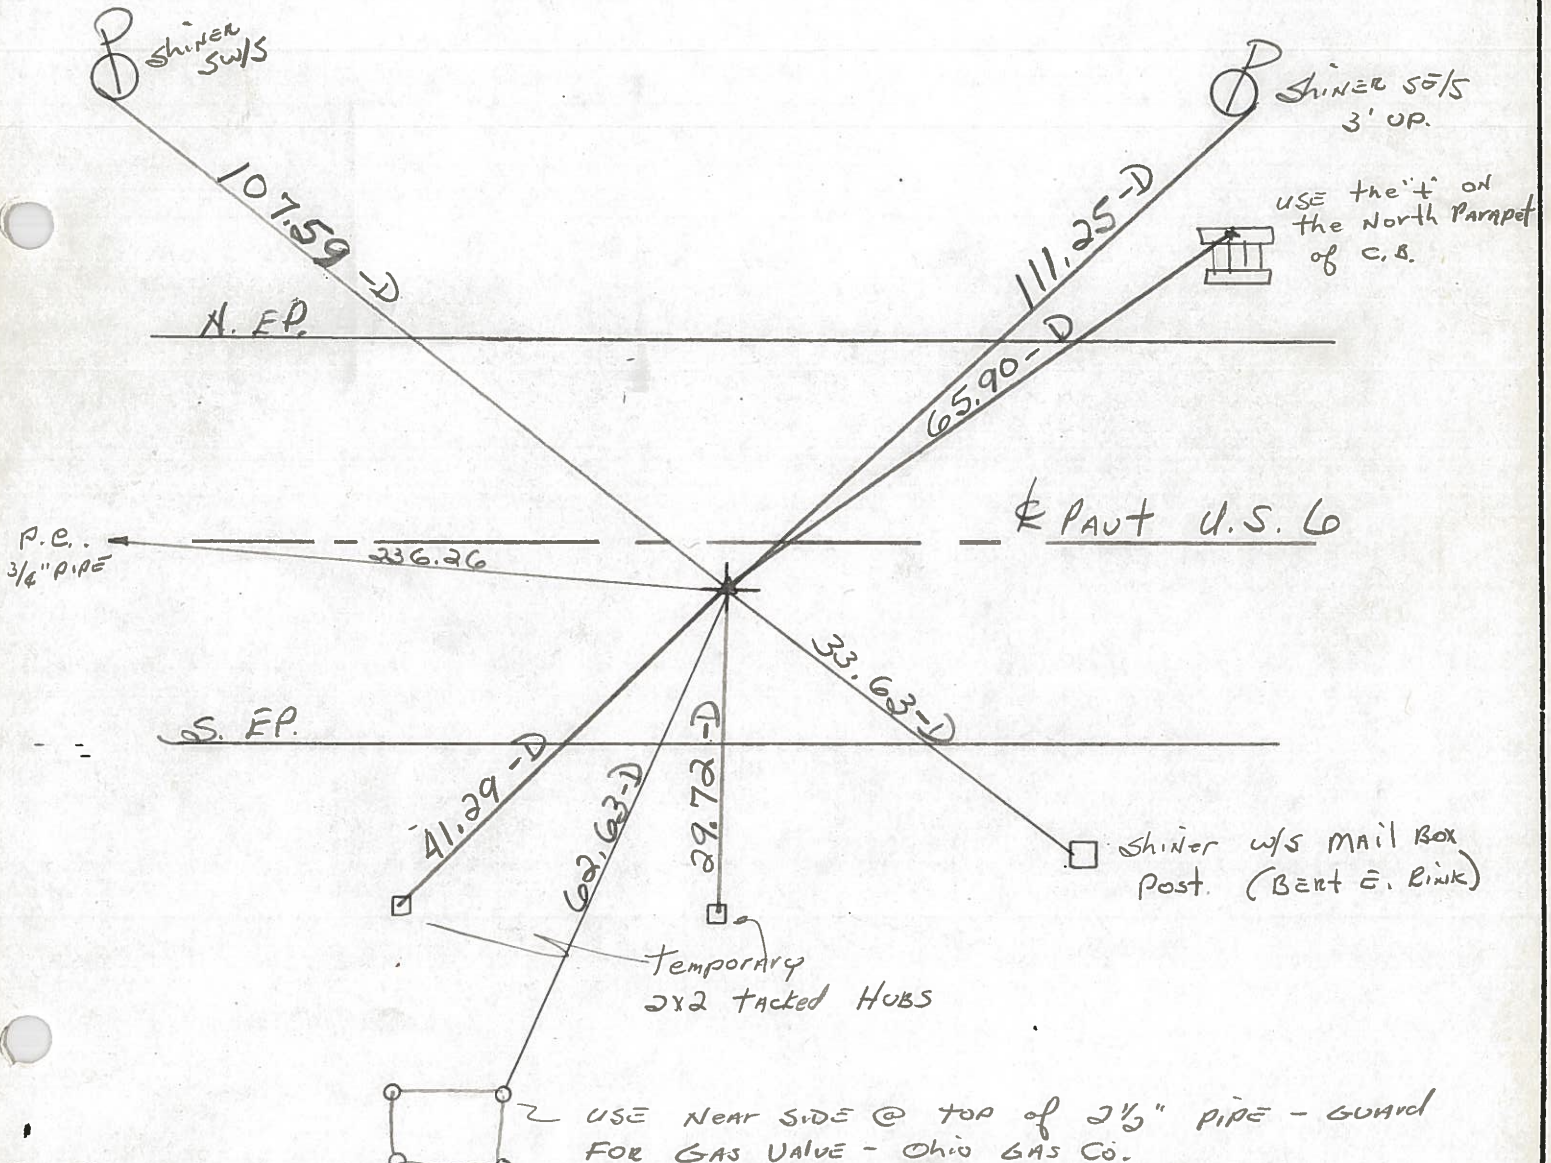 P
Shiner
SW/S
P
Shiner SE/S
3' UP.
USE the "t" ON
the North Parapet
of C.B.
107.59 -D
111.25 -D
65.90 - D
N. EP.
℄ PAVt U.S. 6
P.C.
3/4" PIPE
236.26
33.63 -D
S. EP.
41.29 -D
62.63 -D
29.72 -D
Shiner W/S MAIL BOX
Post. (BERT E.
Temporary
2x2 TACKed HUBS
USE NeAr SIDE @ TOP of 2 1/2" PIPE - GUArd
FOR GAS VALVE - Ohio GAS Co.